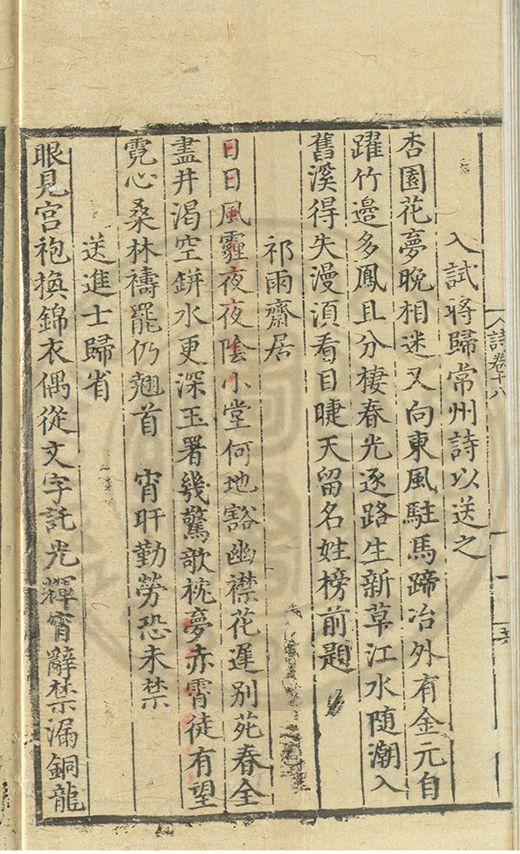 入試將歸常州詩以送之
杏園花夢晚相迷又向東風駐馬蹄冶外有金元自
躍竹邉多鳳且分棲春光逐路生新草江水随潮入
舊溪得失漫湏看目睫天留名姓榜前題
祁雨齋居
日日風霾夜夜陰小堂何地豁幽襟花遲别苑春全
盡井渴空缾水更深玉署幾驚歌枕夢赤霄徒有望
霓心桑林禱罷仍翹首 宵旰勤勞恐未禁
送進士歸省
眼見宮袍換錦衣偶從文字託光輝宵辭禁漏銅龍
詩卷十八